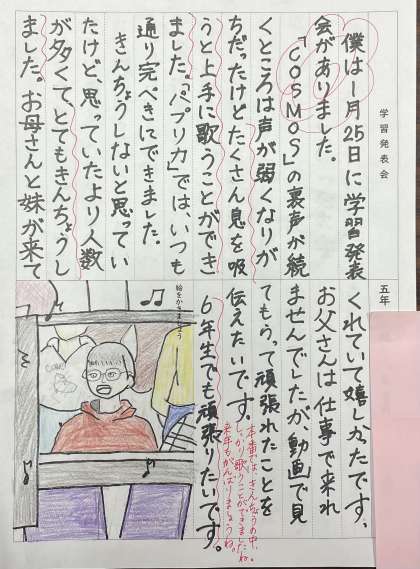 学習発表会
僕は1月25日に学習発表
会がありました。
「COSMOS」の裏声が続
くところは声が弱くなりが
ちだったけどたくさん息を吸
うと上手に歌うことができ
ました。「パプリカ」では、いつも
通り完ぺきにできました。
きんちょうしないと思ってい
たけど、思っていたより人数
が多くて、とてもきんちょうし
ました。お母さんと妹が来て
五年
くれていて嬉しかたです。
お父さんは仕事で来れ
ませんでしたが、動画で見
てもらって頑張れたことを
伝えたいです。
6年生でも頑張りたいです。
本番では、きんちょうの中、
しっかり歌うことができましたね。
来年もがんばりましょうね。
絵をかきましょう